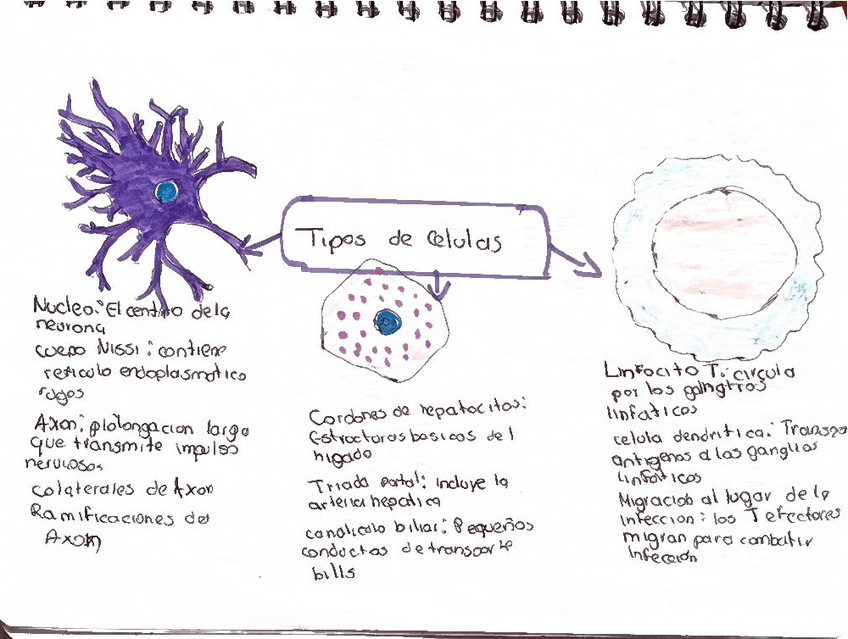 Tipos de Celulas
Nucleo: El centro de la
neurona
cuerpo Nissi: contiene
reticulo endoplasmatico
rugos
Axon: prolongacion larga
que transmite impulsos
nerviosos
colaterales de Axon
Ramificaciones del
Axon
Cordones de hepatocitos:
Estructuras basicas del
higado
Triada portal: incluye la
arteria hepatica
canaliculo biliar: Pequeños
conductos de transporte
bills
Linfocito T: circula
por los ganglios
linfaticos
celula dendritica: Transpor
antigenos a las ganglios
Linfaticos
Migracion al lugar de la
infeccion: los T efectores
migran para combatir
Infeccion